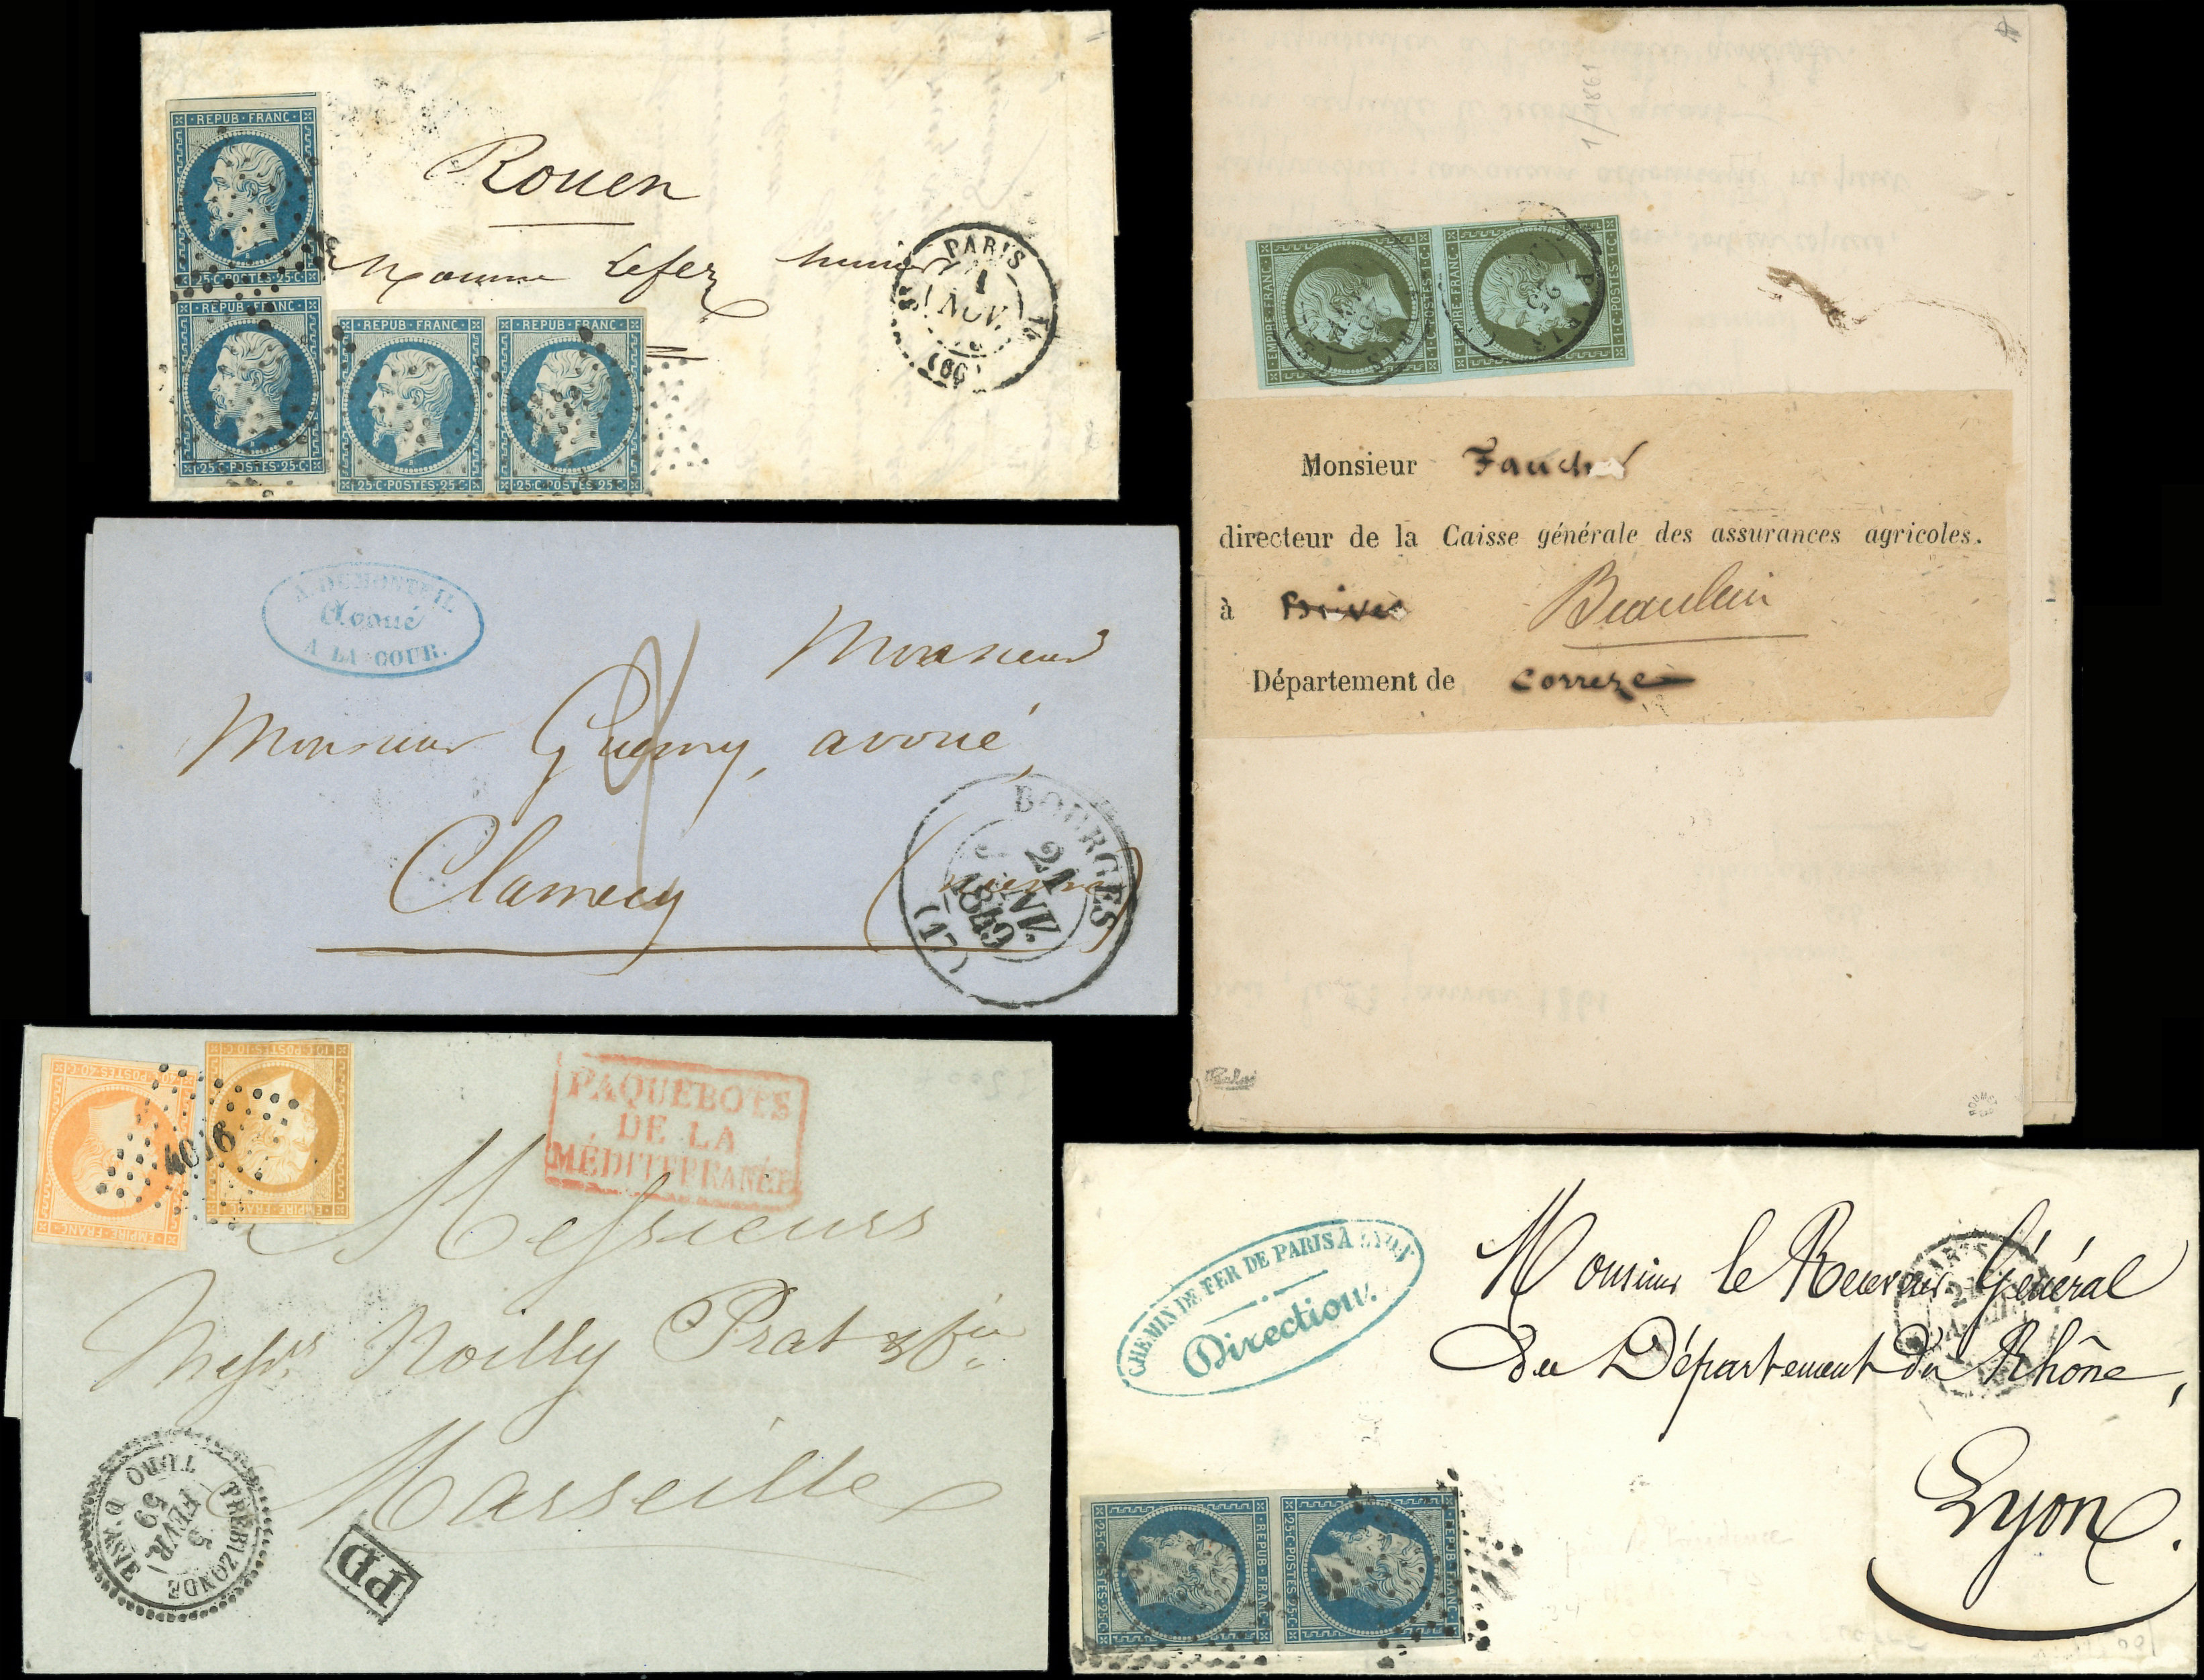 REPUB·FRANC·
25·C·POSTES·25·C
REPUB·FRANC
25·C·POSTES·25·C
REPUB·FRANC
25·C·POSTES·25·C
REPUB·FRANC
25·C·POSTES·25·C
Rouen
PARIS
1
NOV.
(60)
A. DUMONTEIL
Avoué
A LA COUR.
Monsieur
Monsieur Guerny, avoué,
Clamecy (Nièvre)
BOURGES
21
JANV.
1849
(17)
40·C·POSTES·40·C
EMPIRE·FRANC
10·C·POSTES·10·C
EMPIRE·FRANC
4016
PAQUEBOTS
DE LA
MÉDITERRANÉE
Messieurs
Messrs Noilly Prat & Cie
Marseille
TREBIZONDE
5
FEVR
59
TURQ. D'ASIE
PD
1/1861
EMPIRE·FRANC·
1·C·POSTES·1·C
EMPIRE·FRANC
1·C·POSTES·1·C
PARIS
25
Monsieur Faucher
directeur de la Caisse générale des assurances agricoles.
à Brives Beaulieu
Département de Correze
CHEMIN DE FER DE PARIS À LYON
Direction.
Monsieur le Receveur Général
du Département du Rhône,
Lyon.
REPUB·FRANC·
25·C·POSTES·25·C
REPUB·FRANC·
25·C·POSTES·25·C
PARIS